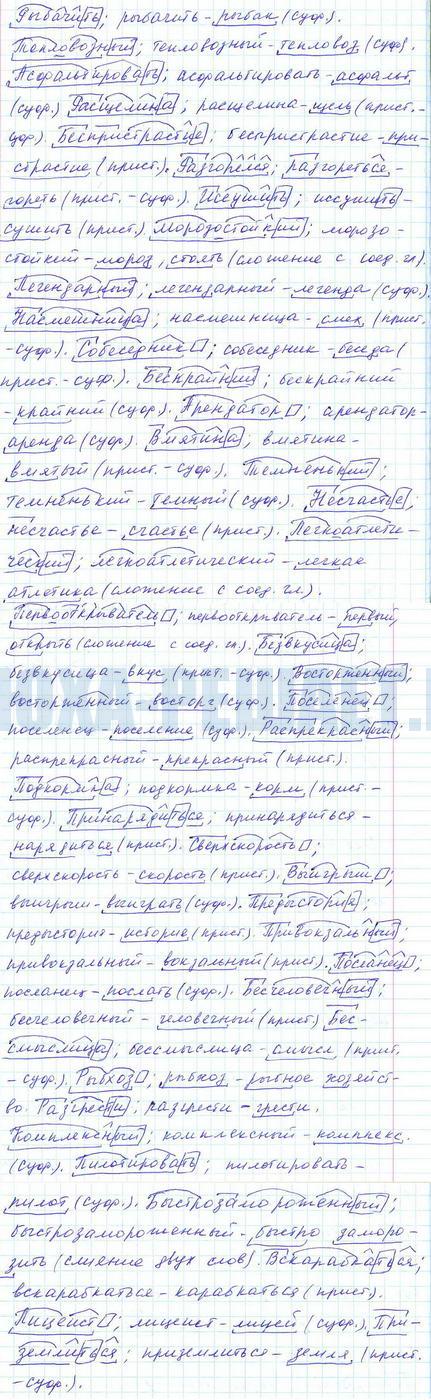 Рыбачить; рыбачить - рыбак (суф.).
Тепловозный; тепловозный - тепловоз (суф).
Асфальтировать; асфальтировать - асфальт
(суф.) Расщелина; расщелина - щель (прист. -
суф). Беспристрастие; беспристрастие - при-
страстие (прист). Разгорелся; разгореться -
гореть (прист. - суф). Иссушить; иссушить -
сушить (прист.) Морозостойкий; морозо-
стойкий - мороз, стоять (сложение с соед. гл).
Легендарный; легендарный - легенда (суф.).
Насмешница; насмешница - смех (прист.
- суф.). Собеседник; собеседник - беседа (
прист. - суф.). Бескрайний; бескрайний
- крайний (суф.). Арендатор; арендатор -
аренда (суф.). Вмятина; вмятина -
вмятый (прист. - суф.). Темненький;
темненький - темный (суф.). Несчастье;
несчастье - счастье (прист.). Легкоатлети-
ческий; легкоатлетический - легкая
атлетика (сложение с соед. гл.).
Первооткрыватель; первооткрыватель - первый,
открыть (сложение с соед. гл.). Безвкусица;
безвкусица - вкус (прист. - суф.). Восторженный;
восторженный - восторг (суф.). Поселенец;
поселенец - поселение (суф.). Распрекрасный;
распрекрасный - прекрасный (прист.).
Подкормка; подкормка - корм (прист. -
суф.). Принарядиться; принарядиться -
нарядиться (прист.). Сверхскорость;
сверхскорость - скорость (прист.). Выигрыш;
выигрыш - выиграть (суф.). Предыстория;
предыстория - история (прист.). Привокзальный;
привокзальный - вокзальный (прист). Посланец;
посланец - послать (суф.). Бесчеловечный;
бесчеловечный - человечный (прист) Бес-
смыслица; бессмыслица - смысл (прист.
- суф.). Рыбхоз; рыбхоз - рыбное хозяйст-
во. Разгрести; разгрести - грести.
Комплексный; комплексный - комплекс.
(суф.). Пилотировать; пилотировать -
пилот (суф.). Быстрозамороженный;
быстрозамороженный - быстро заморо-
зить (слияние двух слов). Вскарабкаться;
вскарабкаться - карабкаться (прист).
Лицеист; лицеист - лицей (суф.). При-
землиться; приземлиться - земля (прист.
- суф.).